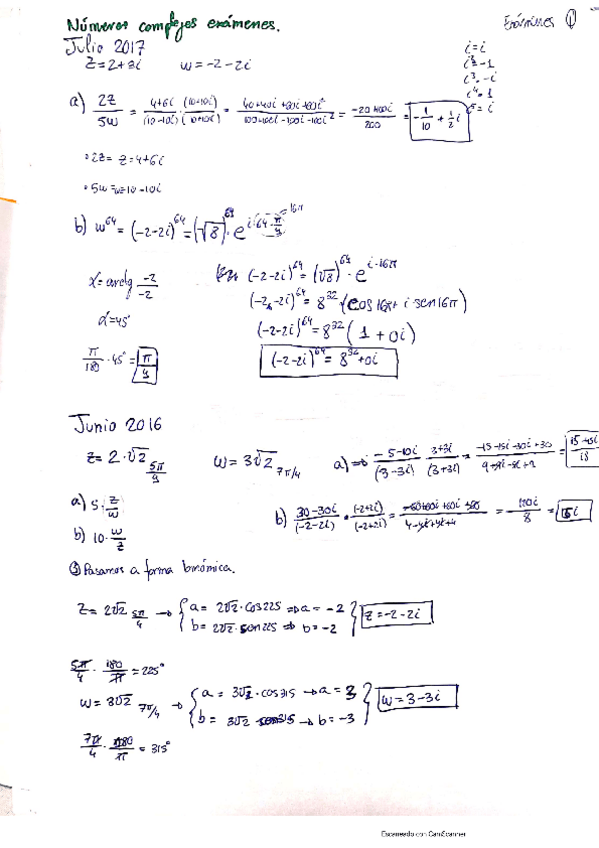 Números complejos exámenes.
Exámenes ①
Julio 2017
z=2+3i w=-2-2i
i=i
i²=-1
i³=-i
i⁴=1
i⁵=i
a) 2z/5w = (4+6i)/(-10-10i) · (-10+10i)/(-10+10i) = = (-20+100i)/200 = -1/10 + 1/2 i
2z = z=4+6i
5w = w=-10-10i
b) w⁶⁴ = (-2-2i)⁶⁴ = (√8)⁶⁴ · e^(i·64·π/4) =16π
α=arctg -2/-2
α=45°
π/180 · 45° = π/4
(-2-2i)⁶⁴ = (√8)⁶⁴ · e^(i·16π)
(-2-2i)⁶⁴ = 8³² (cos 16π + i sen 16π)
(-2-2i)⁶⁴ = 8³² (1 + 0i)
(-2-2i)⁶⁴ = 8³² + 0i
Junio 2016
z= 2·√2 5π/4 w= 3√2 7π/4 a) ⇒ /(3-3i) · (3+3i)/(3+3i) = = /18
a) 5·z/w
b) 10·w/z
b) (30-30i)/(-2-2i) · (-2+2i)/(-2+2i) = = 120i/8 = 15i
③ Pasamos a forma binómica.
z= 2√2 5π/4 → { a= 2√2·cos225 ⇒ a= -2
b= 2√2·sen225 ⇒ b= -2 } z=-2-2i
5π/4 · 180/π = 225°
w= 3√2 7π/4 → { a= 3√2·cos315 → a= 3
b= 3√2 sen315 → b= -3 } w=3-3i
7π/4 · 180/π = 315°
Escaneado con CamScanner